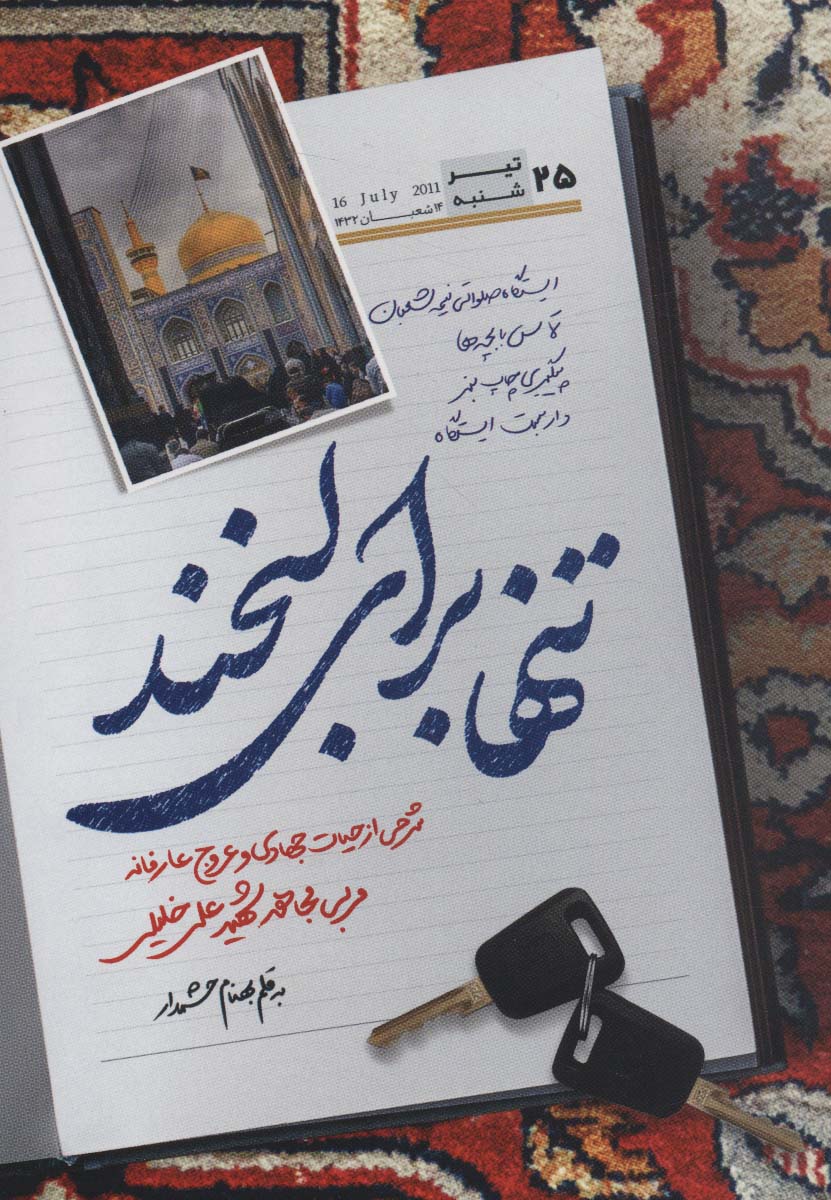 ۲۵ تیر
شنبه
16 July 2011
۱۴ شعبان ۱۴۳۲
ایستگاه صلواتی نیمه شعبان
تماس با بچه‌ها
پیگیری چاپ بنر
داربست ایستگاه
تنها برای لبخند
شرحی از حیات جهادی و عروج عارفانه
مربی مجاهد شهید علی خلیلی
به قلم بهنام حشمدار